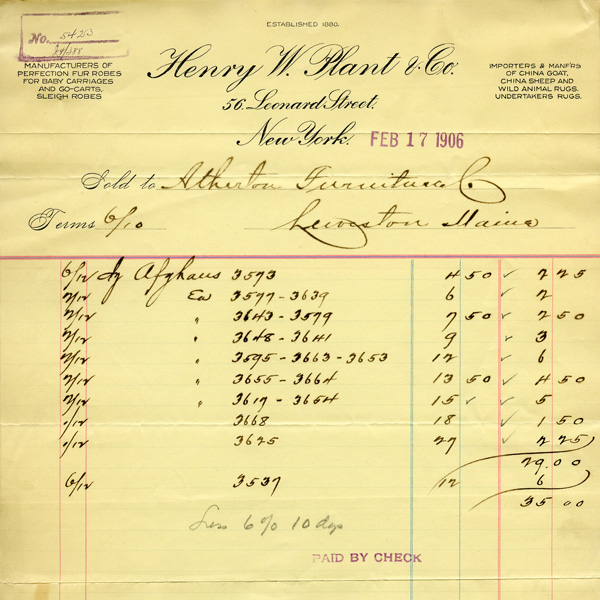 ESTABLISHED 1880.
No. 54253
MANUFACTURERS OF
PERFECTION FUR ROBES
FOR BABY CARRIAGES
AND GO-CARTS,
SLEIGH ROBES
Henry W. Plant & Co.
56 Leonard Street.
New York.
IMPORTERS & MANF'RS
OF CHINA GOAT,
CHINA SHEEP AND
WILD ANIMAL RUGS.
UNDERTAKERS RUGS.
FEB 17 1906
Sold to Atherton Furniture Co
Terms 6/10 Lewiston Maine
6/12 Afghans 3573 4 50 ✓ 2 25
2/12 Ea 3577-3639 6 ✓ 2
2/12 " 3643-3579 7 50 ✓ 2 50
2/12 " 3648-3641 9 ✓ 3
2/12 " 3595-3663-3653 12 ✓ 6
2/12 " 3655-3664 13 50 ✓ 4 50
2/12 " 3617-3654 15 ✓ ✓ 5
1/12 3668 18 ✓ 1 50
1/12 3625 27 ✓ 2 25
29.00
6/12 3537 12 6
35 00
Less 6% 10 dys
PAID BY CHECK